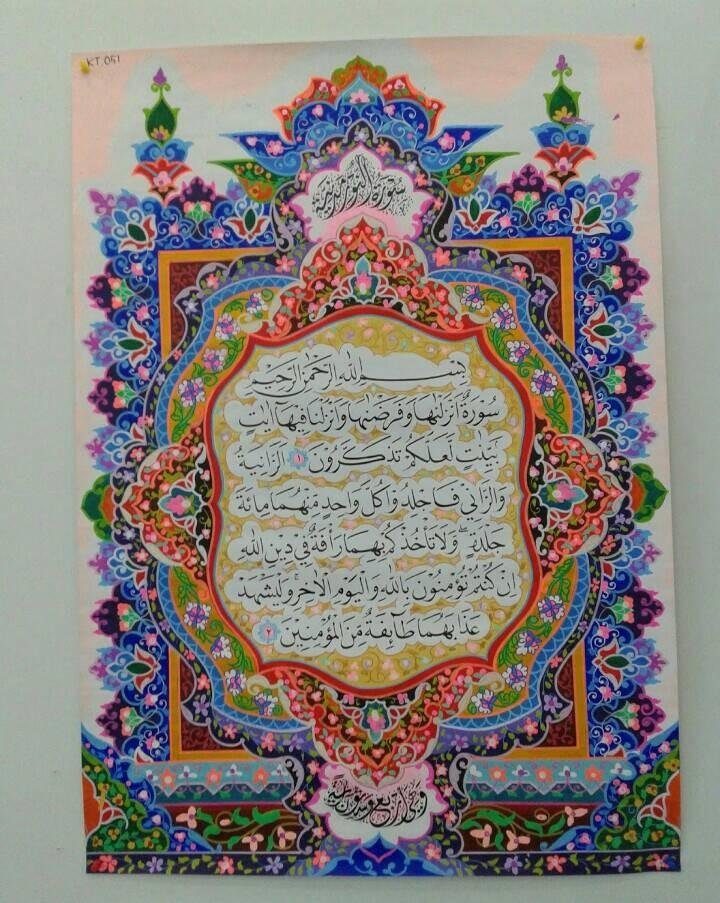 KT. 051
سُورَةُ النُّورِ مَدَنِيَّةٌ
بِسْمِ اللّٰهِ الرَّحْمٰنِ الرَّحِيْمِ
سُوْرَةٌ اَنْزَلْنٰهَا وَفَرَضْنٰهَا وَاَنْزَلْنَا فِيْهَآ اٰيٰتٍ
بَيِّنٰتٍ لَعَلَّكُمْ تَذَكَّرُوْنَ ١ اَلزَّانِيَةُ
وَالزَّانِيْ فَاجْلِدُوْا كُلَّ وَاحِدٍ مِنْهُمَا مِائَةَ
جَلْدَةٍ ۖ وَلَا تَأْخُذْكُمْ بِهِمَا رَأْفَةٌ فِيْ دِيْنِ اللّٰهِ
اِنْ كُنْتُمْ تُؤْمِنُوْنَ بِاللّٰهِ وَالْيَوْمِ الْاٰخِرِۚ وَلْيَشْهَدْ
عَذَابَهُمَا طَآئِفَةٌ مِنَ الْمُؤْمِنِيْنَ ٢
وَهِيَ اَرْبَعٌ وَسِتُّوْنَ اٰيَةً